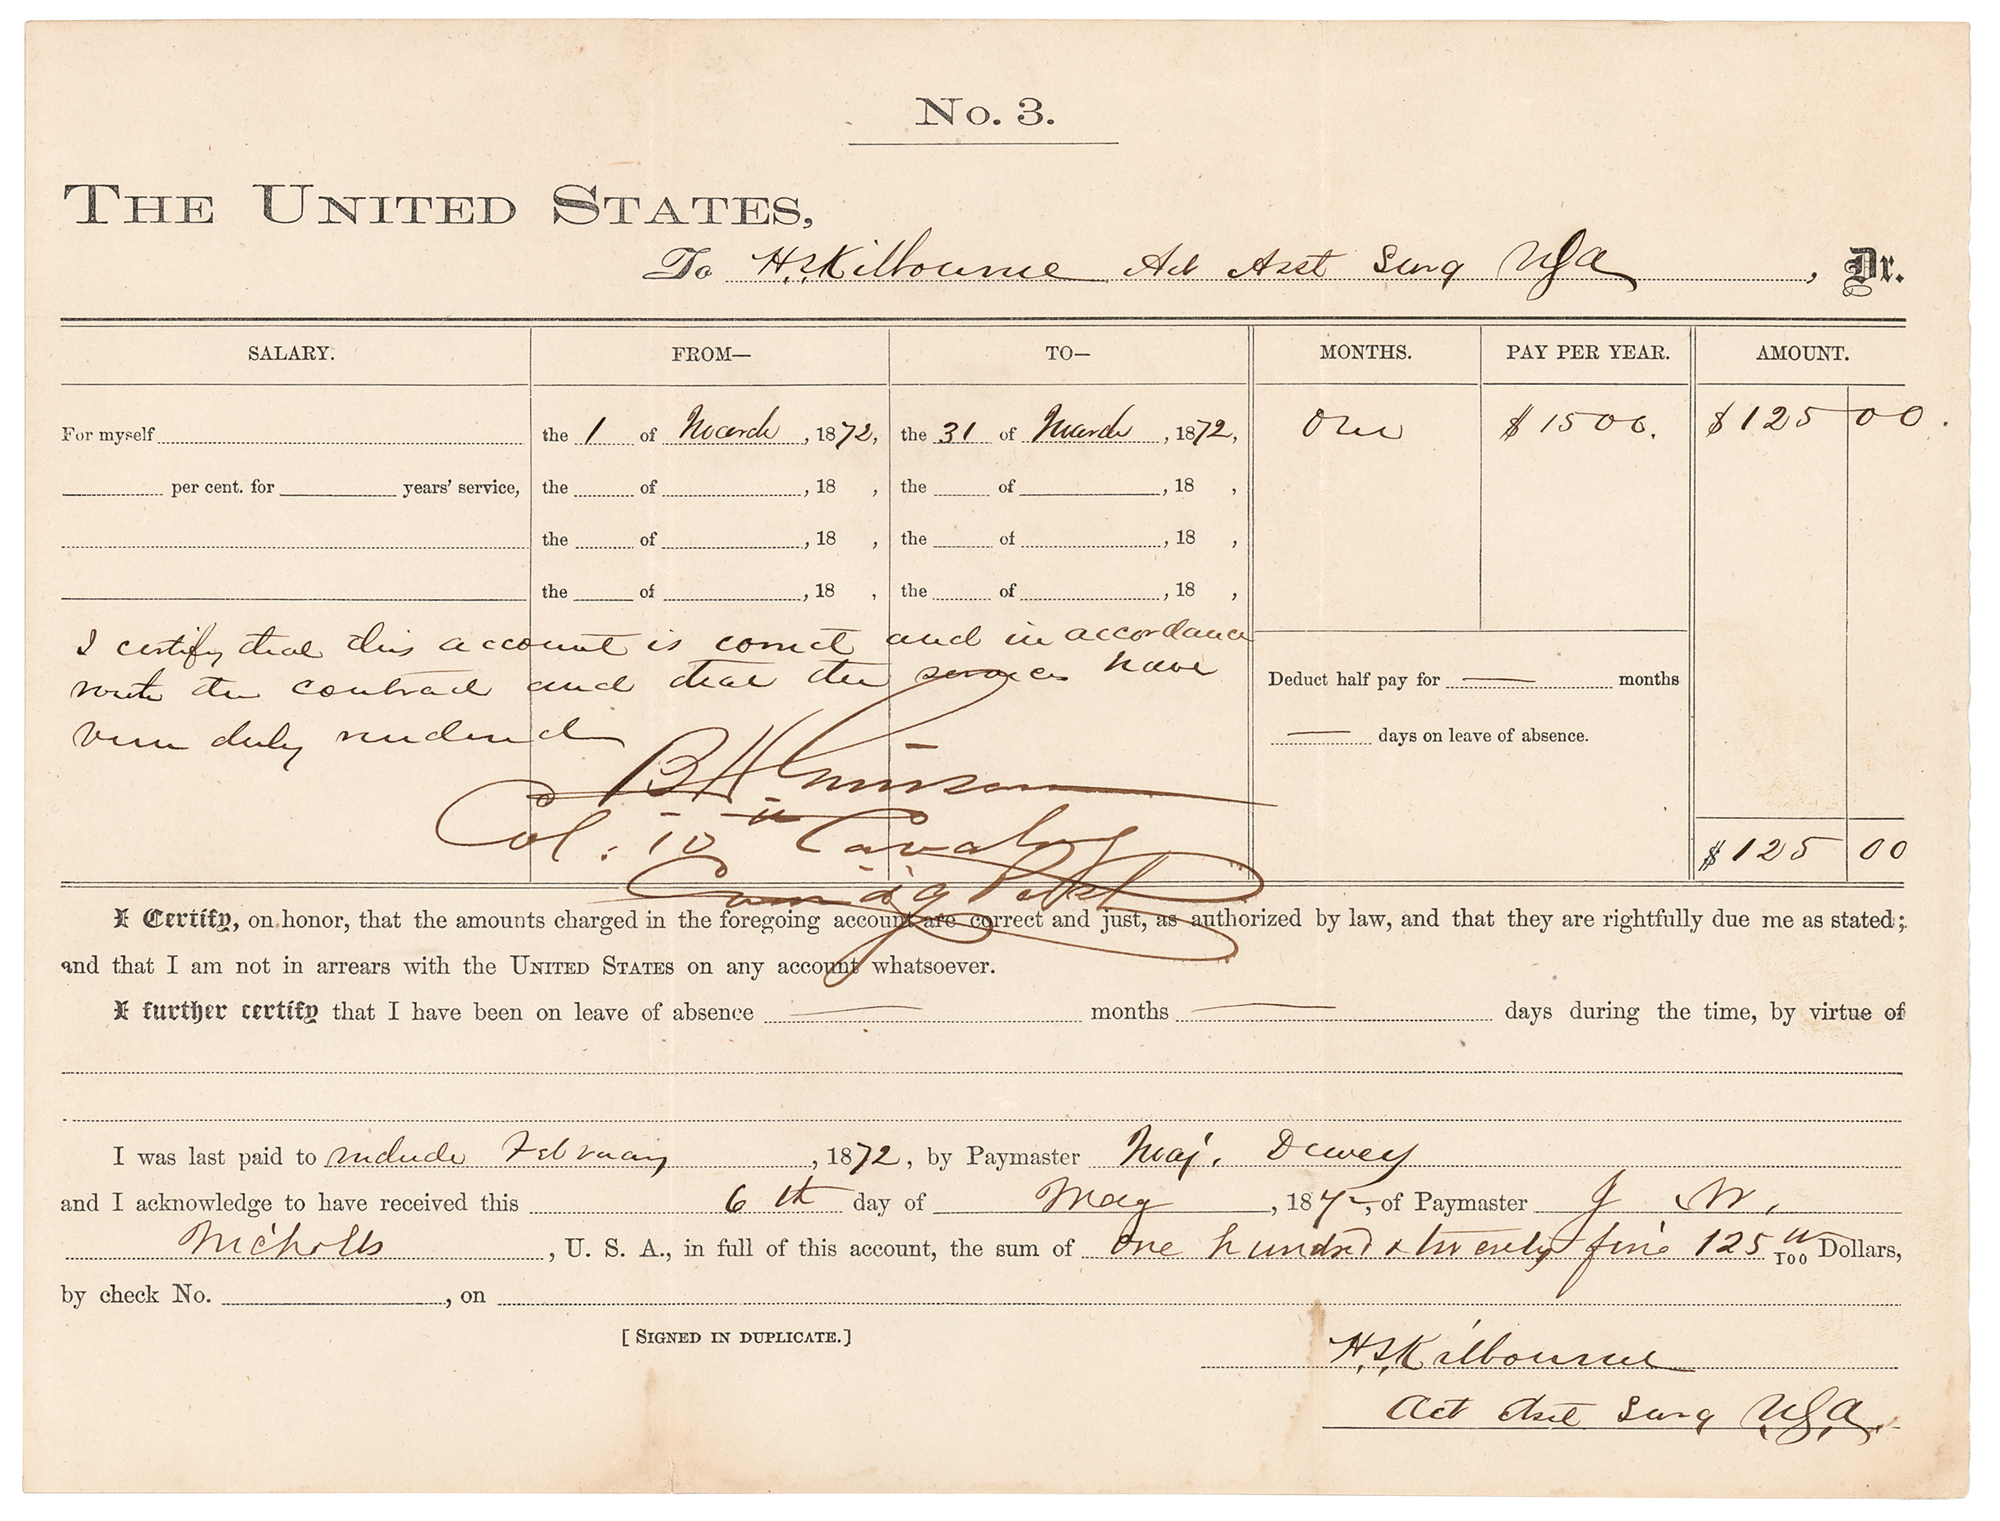 No. 3.
THE UNITED STATES,
To H.S. Kilbourne Act Asst Surg USA, Dr.
SALARY. FROM— TO— MONTHS. PAY PER YEAR. AMOUNT.
For myself the 1 of March, 1872, the 31 of March, 1872, One $1500. $125 00.
per cent. for years' service, the of , 18 , the of , 18 ,
the of , 18 , the of , 18 ,
the of , 18 , the of , 18 ,
I certify that this account is correct and in accordance
with the contract and that the services have
been duly rendered
Deduct half pay for — months
— days on leave of absence.
B H Grierson
Col. 10th Cavalry
Comd'g Post
$125 00
I Certify, on honor, that the amounts charged in the foregoing account are correct and just, as authorized by law, and that they are rightfully due me as stated;
and that I am not in arrears with the UNITED STATES on any account whatsoever.
I further certify that I have been on leave of absence — months — days during the time, by virtue of
I was last paid to include February, 1872, by Paymaster Maj. Dewey
and I acknowledge to have received this 6th day of May, 187 , of Paymaster J W.
Nicholls, U. S. A., in full of this account, the sum of One hundred & twenty five 125 /100 Dollars,
by check No. , on
[SIGNED IN DUPLICATE.]
H.S. Kilbourne
Act Asst Surg U.S.A.